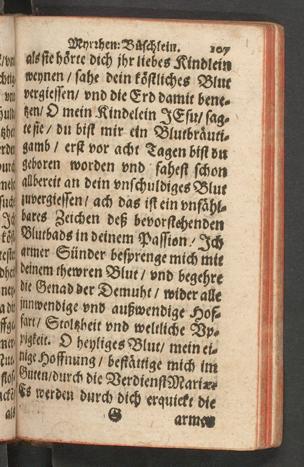 Myrrhen-Büschlein. 107
als sie hörte dich jhr liebes Kindlein
weynen / sahe dein köstliches Blut
vergiessen / vnd die Erd damit bene-
tzen / O mein Kindelein JEsu / sag-
te sie / du bist mir ein Blutbräuti-
gamb / erst vor acht Tagen bist du
geboren worden vnd fahest schon
allbereit an dein vnschuldiges Blut
zuvergiessen / ach das ist ein vnfähl-
bares Zeichen deß bevorstehenden
Blutbads in deinem Passion / Jch
armer Sünder besprenge mich mit
deinem thewren Blut / vnd begehre
die Genad der Demuht / wider alle
innwendige vnd außwendige Hof-
fart / Stoltzheit vnd weltliche Vp-
pigkeit. O heyliges Blut / mein ei-
nige Hoffnung / bestättige mich im
Guten / durch die Verdienst Mariæ.
Es werden durch dich erquickt die
G armen